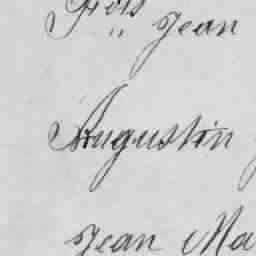 Frois
" Jean
Augustin
Jean Ma